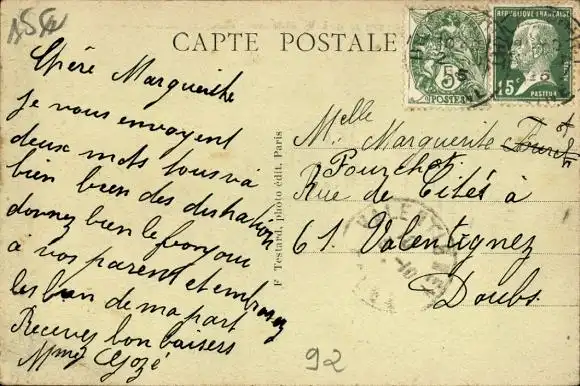 CARTE POSTALE
Chère Marguerithe
je vous envoyent
deux mots tous va
bien bien des
donnez bien le bonjour
a vos parent et embrassez
les bien de ma part
Recevez bon baisers
F Testard, photo édit. Paris
5c
POSTES
REPUBLIQUE FRANÇAISE
15c
PASTEUR
Melle
M. Marguerite
Pourchot
Rue de Cités à
61. Valentigney
Doubs.
92